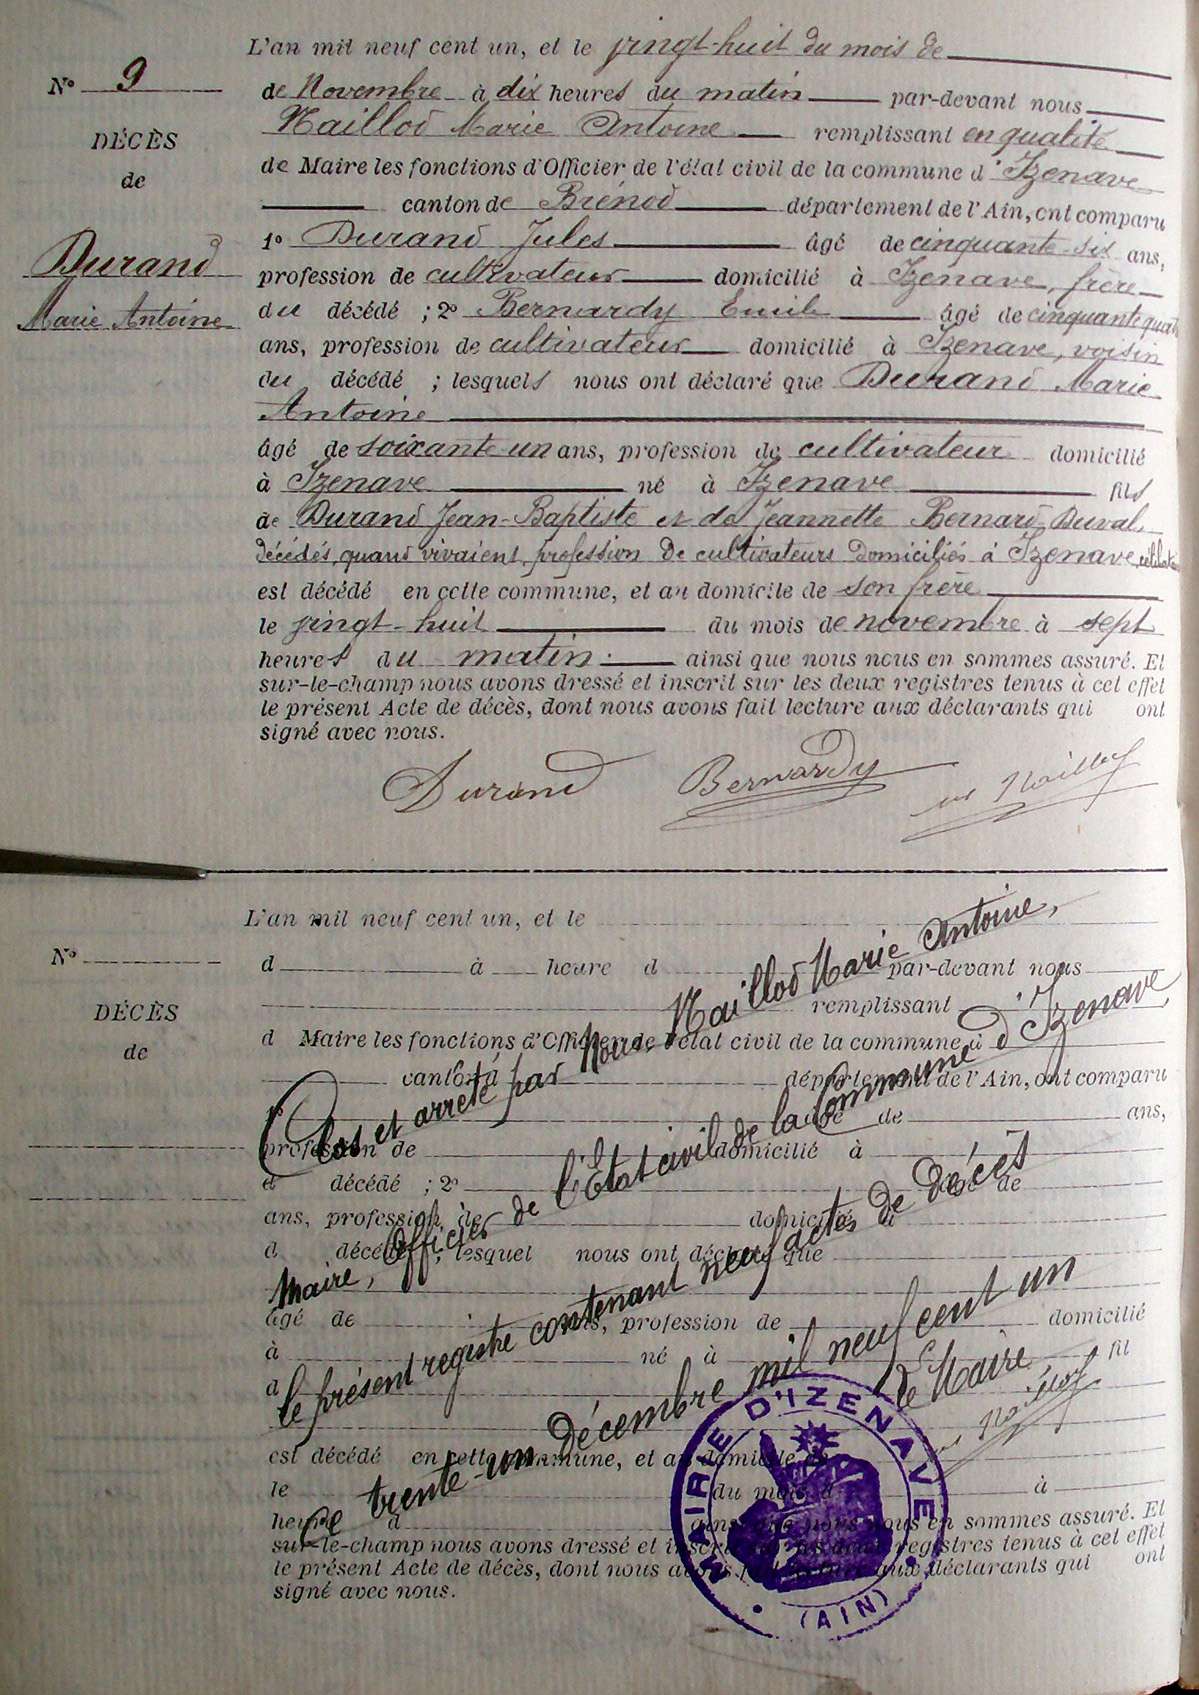 L'an mil neuf cent un, et le vingt-huit du mois de
N° 9
de Novembre à dix heures du matin par-devant nous
Maillod Marie Antoine remplissant en qualité
DÉCÈS
de Maire les fonctions d'Officier de l'état civil de la commune d'Izenave
de
canton de Brénod département de l'Ain, ont comparu
1° Durand Jules âgé de cinquante-six ans,
Durand
profession de cultivateur domicilié à Izenave, frère
Marie Antoine
du décédé ; 2° Bernardy Emile âgé de cinquante quatre
ans, profession de cultivateur domicilié à Izenave, voisin
du décédé ; lesquels nous ont déclaré que Durand Marie
Antoine
âgé de soixante-un ans, profession de cultivateur domicilié
à Izenave né à Izenave fils
de Durand Jean-Baptiste et de Jeannette Bernard Duval
décédés, quand vivaient, profession de cultivateurs domiciliés à Izenave,
est décédé en cette commune, et au domicile de son frère
le vingt-huit du mois de novembre à sept
heures du matin ainsi que nous nous en sommes assuré. Et
sur-le-champ nous avons dressé et inscrit sur les deux registres tenus à cet effet
le présent Acte de décès, dont nous avons fait lecture aux déclarants qui ont
signé avec nous.
Durand Bernardy Maillod
L'an mil neuf cent un, et le
N°
d à heure d par-devant nous
remplissant
DÉCÈS
d Maire les fonctions d'Officier de l'état civil de la commune d
de
canton d département de l'Ain, ont comparu
1° âgé de ans,
profession de domicilié à
d décédé ; 2° âgé de
ans, profession de domicilié à
d décédé ; lesquel nous ont déclaré que
âgé de ans, profession de domicilié
à né à fil
d
est décédé en cette commune, et au domicile de
le du mois d à
heure d ainsi que nous nous en sommes assuré. Et
sur-le-champ nous avons dressé et inscrit sur les deux registres tenus à cet effet
le présent Acte de décès, dont nous avons fait lecture aux déclarants qui ont
signé avec nous.
Clos et arrêté par Nous, Maillod Marie Antoine,
Maire, Officier de l'État civil de la Commune d'Izenave
le présent registre contenant neuf actes de décès
Ce trente-un décembre mil neuf cent un
Le Maire
Maillod
MAIRIE D'IZENAVE
(AIN)